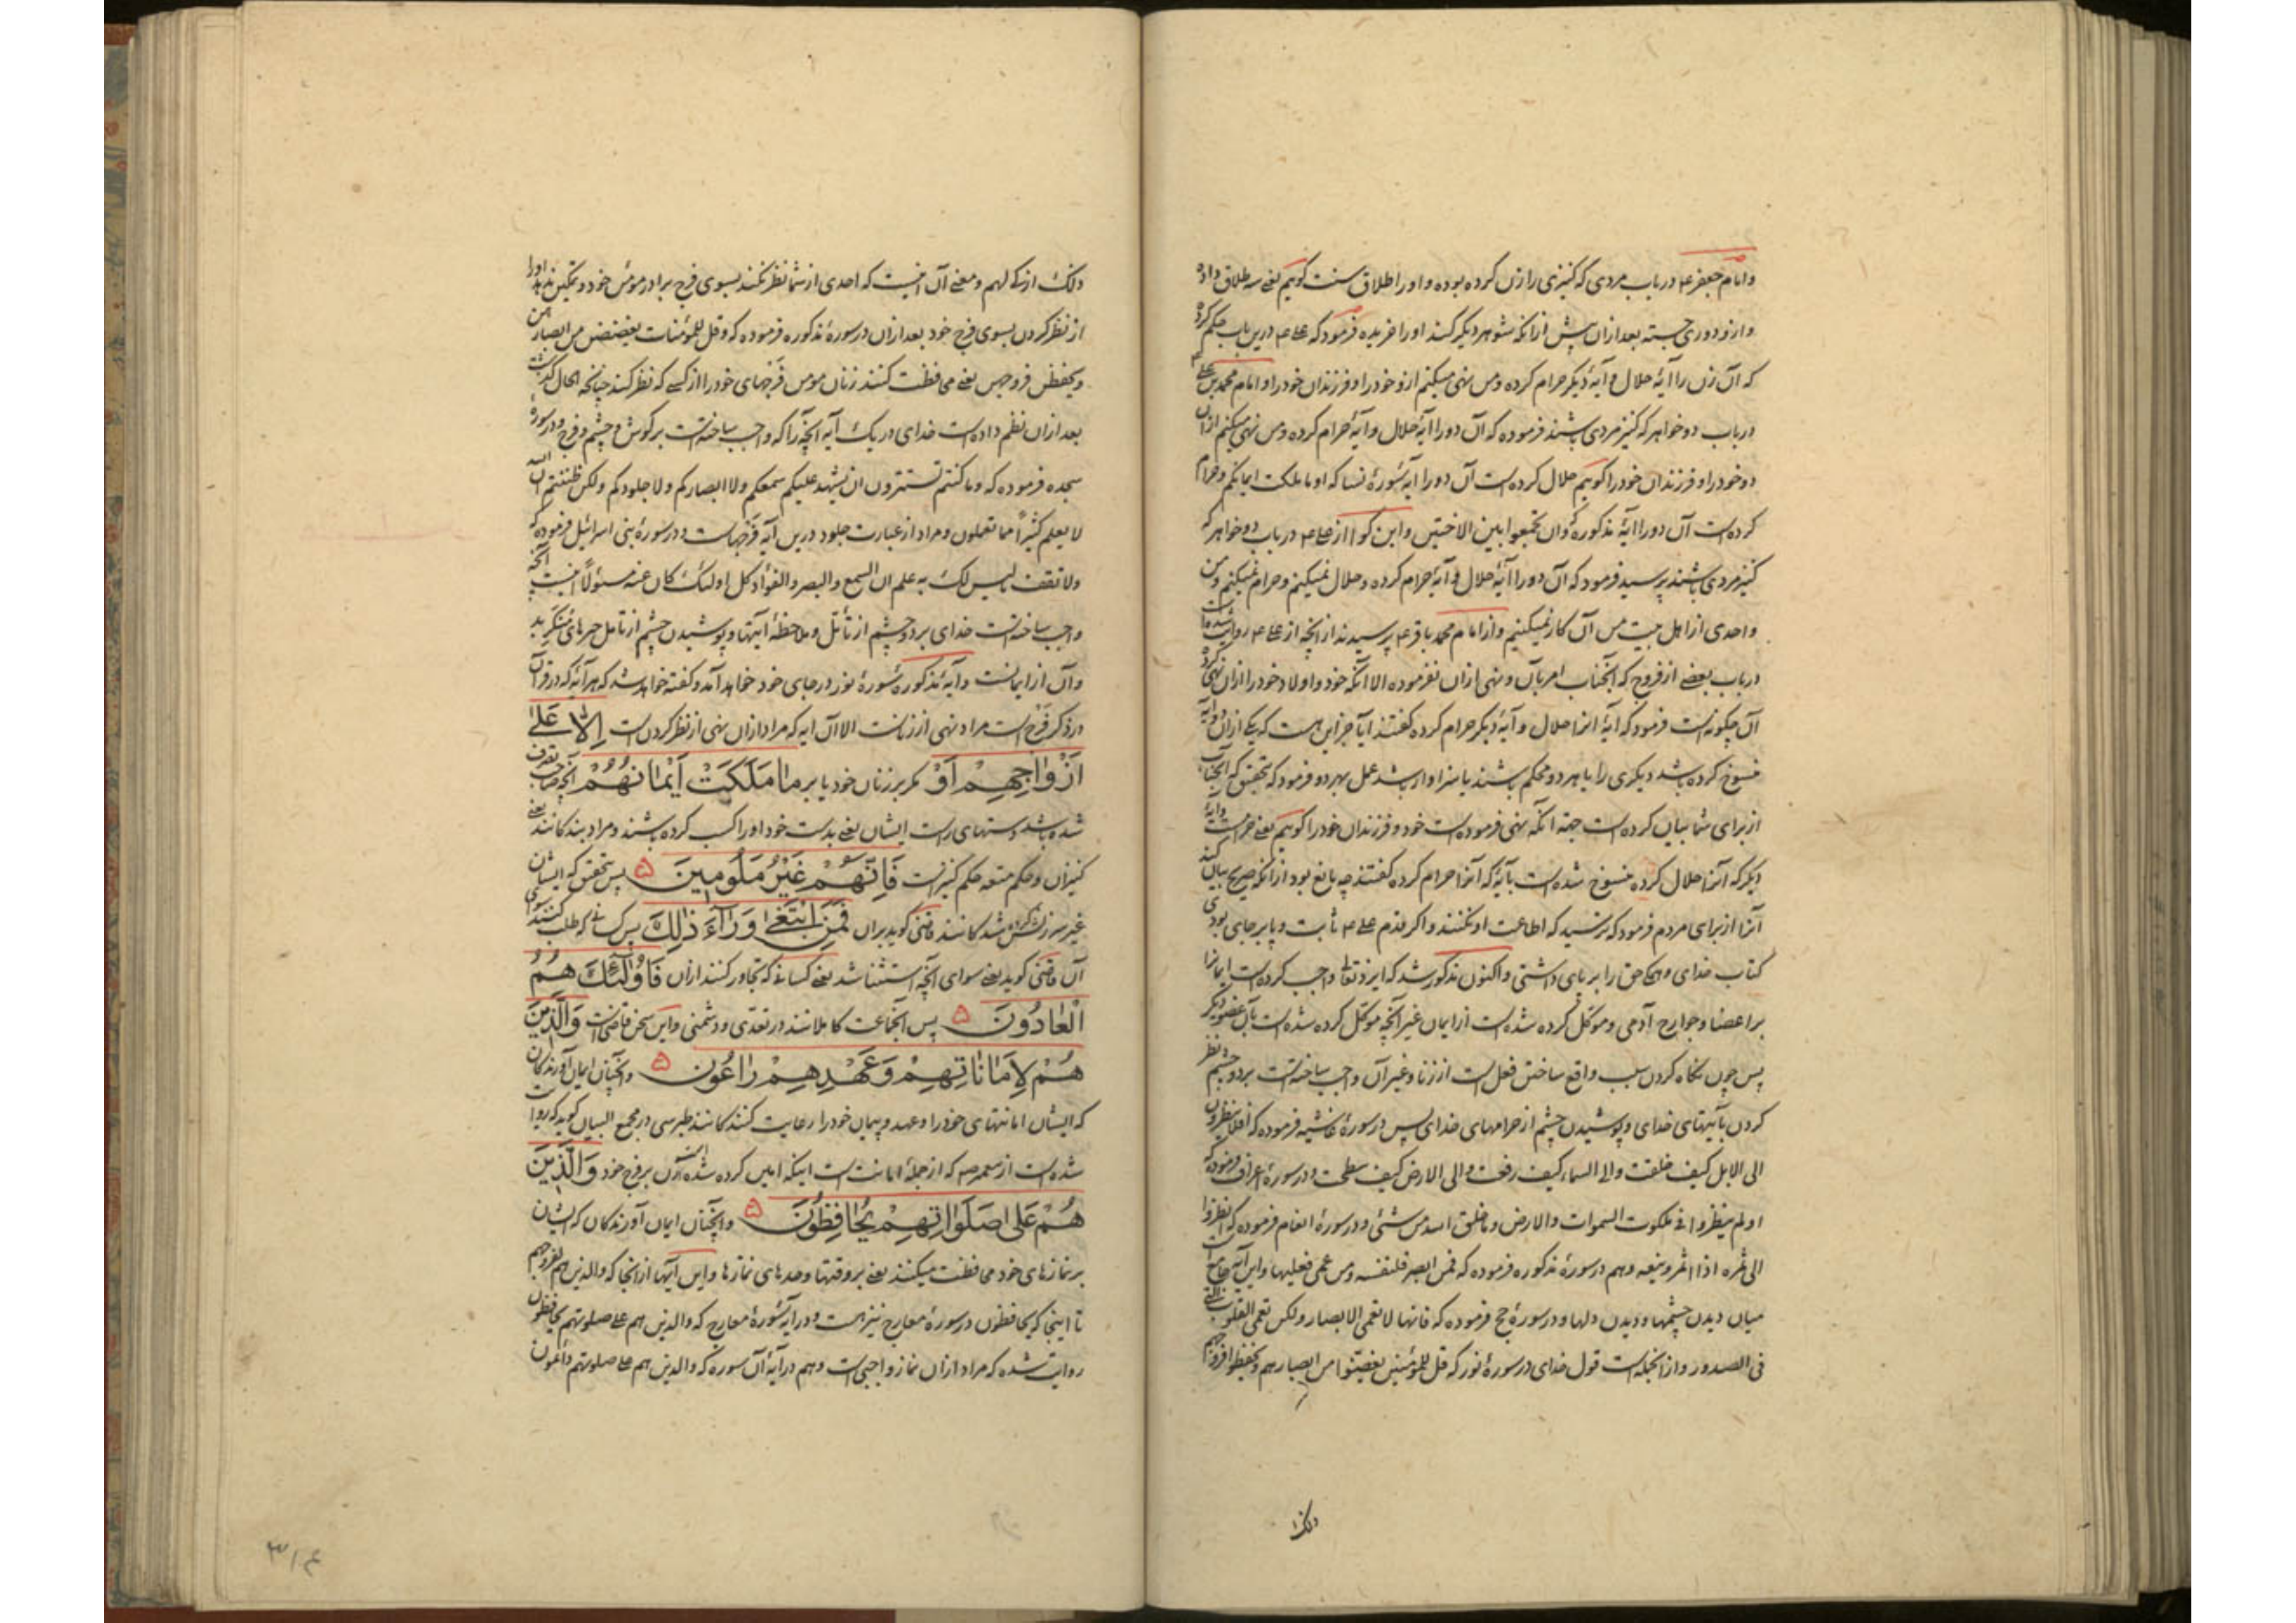 وامام جعفر ع در باب مردی که کنیزی را زن کرده بوده و او را طلاق سنت گوییم یعنی سه طلاق داده
و ازو دوری جسته بعد ازان پیش ازانکه شوهر دیگر کند او را خریده فرمود که علی ع درین باب حکم کرده
که آن زن را آیهٔ حلال و آیهٔ دیگر حرام کرده و من نهی میکنم ازو خود را و فرزندان خود را و امام محمد بن علی ع
در باب دو خواهر که کنیز مردی باشند فرموده که آن دو را آیهٔ حلال و آیهٔ حرام کرده و من نهی میکنم ازان
دو خود را و فرزندان خود را گوییم حلال کرده است آن دو را آیهٔ سورهٔ نسا که او ما ملکت ایمانکم و حرام
کرده است آن دو را آیهٔ مذکوره که وان تجمعوا بین الاختین و ابن کوا از علی ع در باب دو خواهر که
کنیز مردی باشند پرسید فرمود که آن دو را آیهٔ حلال و آیهٔ حرام کرده و حلال نمیکنم و حرام نمیکنم و من
و احدی از اهل بیت من آن کار نمیکنیم و از امام محمد باقر ع پرسیدند از آنچه از علی ع روایت شده است
در باب بعضی از فروج که آنجناب امر بآن و نهی ازان نفرموده الا آنکه خود و اولاد خود را ازان نهی کرده
آن چگونه است فرمود که آیهٔ آنرا حلال و آیهٔ دیگر حرام کرده گفتند آیا جز این هست که یکی ازان دو آیه
منسوخ کرده باشد دیگری را یا هر دو محکم باشند یا سزاوار باشد عمل بهر دو فرمود که بتحقیق که آنجناب
از برای شما بیان کرده است جهة آنکه نهی فرموده است خود و فرزندان خود را گوییم یعنی حرامست و آیهٔ
دیگر که آنرا حلال کرده منسوخ شده است بآیهٔ که آنرا حرام کرده گفتند چه مانع بود ازانکه صریح بیان کند
آنرا از برای مردم فرمود که ترسید که اطاعت او نکنند و اگر قدم علی ع ثابت و پا بر جای بودی
کتاب خدای و همگی حق را بر پای داشتی و اکنون مذکور شد که ایزد تعالی واجب کرده است ایمانرا
بر اعضا و جوارح آدمی و موکل کرده شده است از ایمان غیر آنچه موکل کرده شده است بآن عضو دیگر
پس چون نگاه کردن سبب واقع ساختن فعل است از زنا و غیر آن واجب ساخته است بر دو چشم نظر
کردن بآیتهای خدای و پوشیدن چشم از حرامهای خدای پس در سورهٔ غاشیه فرموده که افلا ینظرون
الی الابل کیف خلقت والی السماء کیف رفعت والی الارض کیف سطحت و در سورهٔ اعراف فرموده که
اولم ینظروا فی ملکوت السموات والارض وما خلق الله من شئ و در سورهٔ انعام فرموده که انظروا
الی ثمره اذا اثمر وینعه و هم در سورهٔ مذکوره فرموده که فمن ابصر فلنفسه ومن عمی فعلیها و این آیه جامع است
میان دیدن چشمها و دیدن دلها و در سورهٔ حج فرموده که فانها لا تعمی الابصار ولکن تعمی القلوب التی
فی الصدور و از آنجمله است قول خدای در سورهٔ نور که قل للمؤمنین یغضوا من ابصارهم ویحفظوا فروجهم
ذلک
ذلک ازکی لهم و معنی آن اینست که احدی از شما نظر نکند بسوی فرج برادر مؤمن خود و تمکین ندهد او را
از نظر کردن بسوی فرج خود بعد ازان در سورهٔ مذکوره فرموده که وقل للمؤمنات یغضضن من ابصارهن
ویحفظن فروجهن یعنی محافظت کنند زنان مومن فرجهای خود را از کسی که نظر کند چنانچه الحال گذشت
بعد ازان نظم داده است خدای در یک آیه آنچه را که واجب ساخته است بر گوش و چشم و فرج و در سورهٔ
سجده فرموده که وما کنتم تستترون ان یشهد علیکم سمعکم ولا ابصارکم ولا جلودکم ولکن ظننتم ان الله
لا یعلم کثیراً مما تعملون و مراد از عبارت جلود درین آیه فرجهاست و در سورهٔ بنی اسرائیل فرموده که
ولا تقف ما لیس لک به علم ان السمع والبصر والفؤاد کل اولئک کان عنه مسئولاً اینست آنچه
واجب ساخته است خدای بر دو چشم از تأمل و ملاحظهٔ آیتها و پوشیدن چشم از تأمل چیزهای منکر بد
و آن از ایمانست و آیهٔ مذکورهٔ سورهٔ نور در جای خود خواهد آمد و گفته خواهد شد که هر آیه که در قرآن
در ذکر فرج است مراد نهی از زناست الا آن آیه که مراد ازان نهی از نظر کردن است اِلّا عَلیٰ
اَزْواجِهِمْ اَوْ مگر بر زنان خود یا بر ما مَلَکَتْ اَیْمانُهُمْ آنچه صاحب تصرف
شده باشد دستهای راست ایشان یعنی بدست خود او را کسب کرده باشند و مراد بندگانند یعنی
کنیزان و حکم متعه حکم کنیز است فَاِنَّهُمْ غَیْرُ مَلُومِینَ ۵ پس بتحقیق که ایشان
غیر سرزنش شدگانند قاضی گوید بران فَمَنِ ابْتَغیٰ وَرآءَ ذٰلِکَ پس کسانی که طلب کنند سوای
آن قاضی گوید یعنی سوای آنچه استثنا شد یعنی کسانی که تجاوز کنند ازان فَاُولٰئِکَ هُمُ
الْعادُونَ ۵ پس آنجماعت کاملانند در تعدی و دشمنی و این سخن قاضی است وَالَّذِینَ
هُمْ لِاَماناتِهِمْ وَعَهْدِهِمْ راعُون ۵ و آنچنان ایمان آورندگان
که ایشان امانتهای خود را و عهد و پیمان خود را رعایت کنندگانند طبرسی در مجمع البیان گوید که روایت
شده است از ائمه ع که از جملهٔ امانت است اینکه امین کرده شده است زن بر فرج خود وَالَّذِینَ
هُمْ عَلیٰ صَلَواتِهِمْ یُحافِظُونَ ۵ و آنچنان ایمان آورندگان که ایشان
بر نمازهای خود محافظت میکنند یعنی بر وقتها و حدهای نمازها و این آیها از آنجا که والذین هم لفروجهم
تا اینجا که یحافظون در سورهٔ معارج نیز هست و در آیهٔ سورهٔ معارج که والذین هم علی صلوتهم یحافظون
روایت شده که مراد ازان نماز واجبی است و هم در آیهٔ آن سوره که والذین هم علی صلوتهم دائمون
۳۱۴